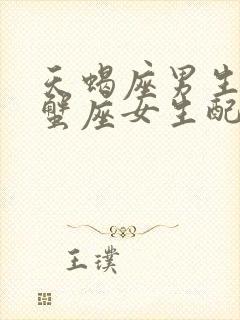 天蝎座男生
蟹座女生配
王璞